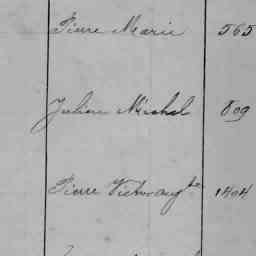 Pierre Marie 565
Julien Michel 809
Pierre Victor Augte 1404